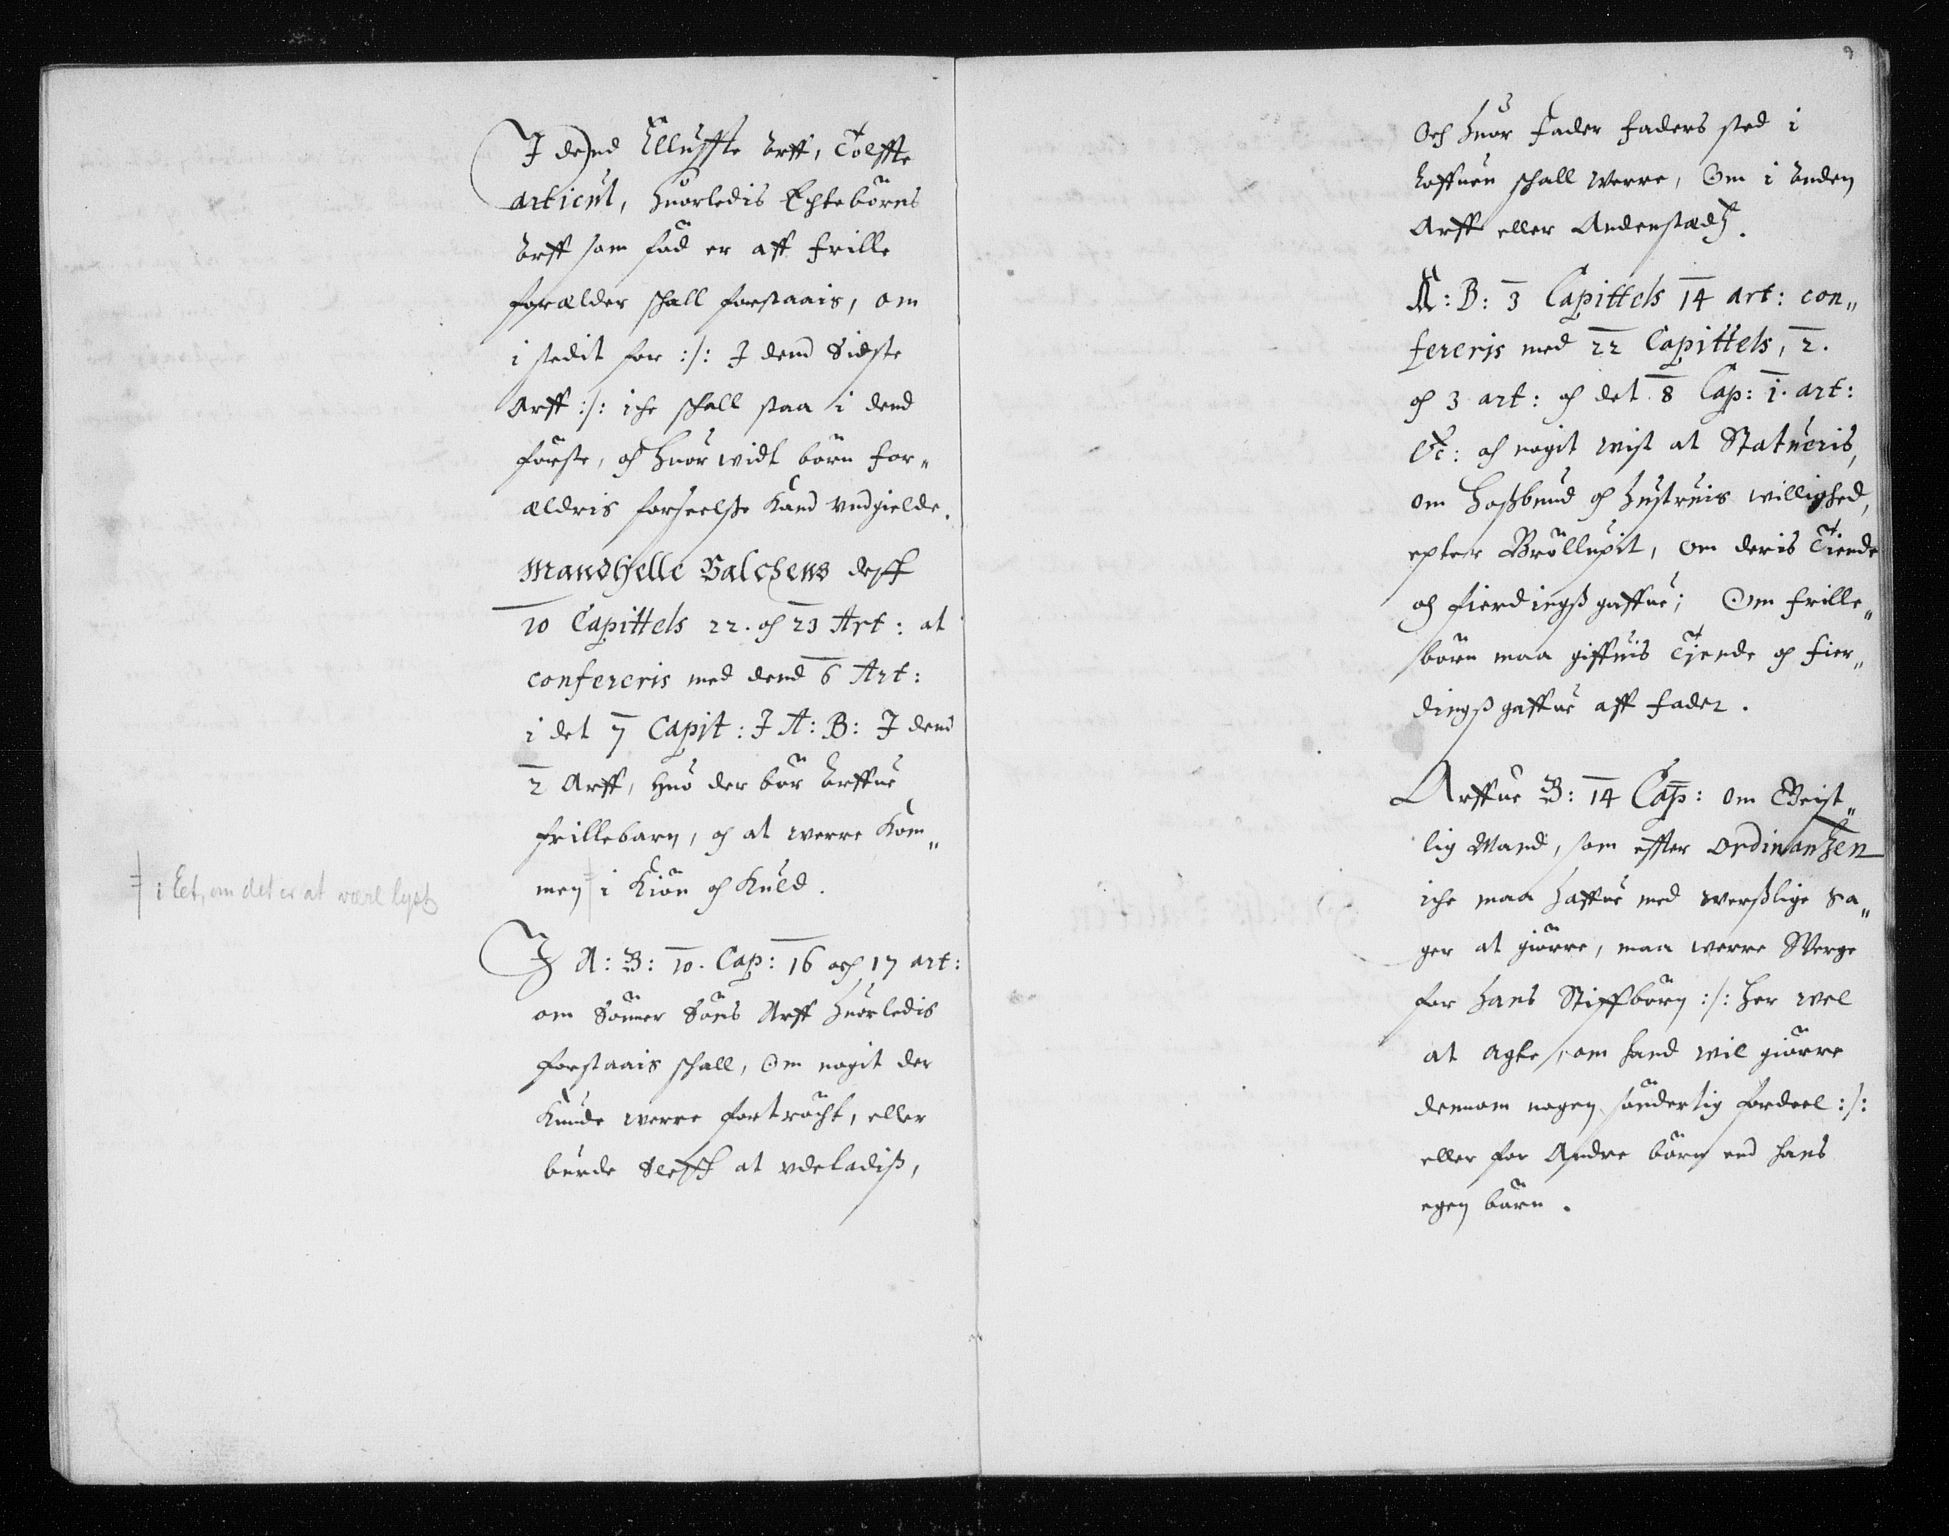 J dend Elluffte Arff, Tolffte
articul, huorledis Echtebörns
Arff som fød er aff frille
forælder schall forstaais, om
i stedit for :/: J dend Sidste
Arff :/: iche schall staa i dend
første, och huor vidt börn for„
ældris forseelse kand vndgielde.
Mandhelle Balchens deff
10 Capittels 22. och 23 Art: at
confereris med dend 6 Art:
i det 7 Capit: J A: B: J dend
2 Arff, huo der bör Arffue
frillebarn, och at werre kom„
men i Kiön och Kuld.
i Eet, om det er at være lyst
J A: B: 10. Cap: 16 och 17 art:
om Sönner Söns Arff huorledis
forstaais schall, Om nogit der
kunde werre fortröcht, eller
burde at vdeladiß,
9
Och huor Fader Faders sted i
schall werre, Om i Anden
Arff eller Andenstædz.
A: B: 3 Capittels 14 art: con„
fereris med 22 Capittels, 2.
och 3 art: och det 8 Cap: 1. art:
Etc: och nogit vist at Statueris,
om Hoßbund och Hustruis willighed,
epter Bröllupit, om deris Tiende
och fierdingß gaffue; Om frille„
börn maa giffuis Tiende och fier„
dingß gaffue aff Fader.
Arffue B: 14 Cap: Om Geist„
lig Mand, som effter Ordinantzen
iche maa haffue med werßlige Sa„
ger at giörre, maa werre Werge
for hans Stiffbörn :/: her vel
at agte, om hand vil giörre
dennom nogen sönderlig fordeel :/:
eller for Andre börn end hans
egen börn.